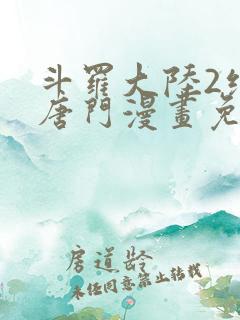 斗羅大陸2
唐門漫畫免
房道龄
未经同意禁止转载